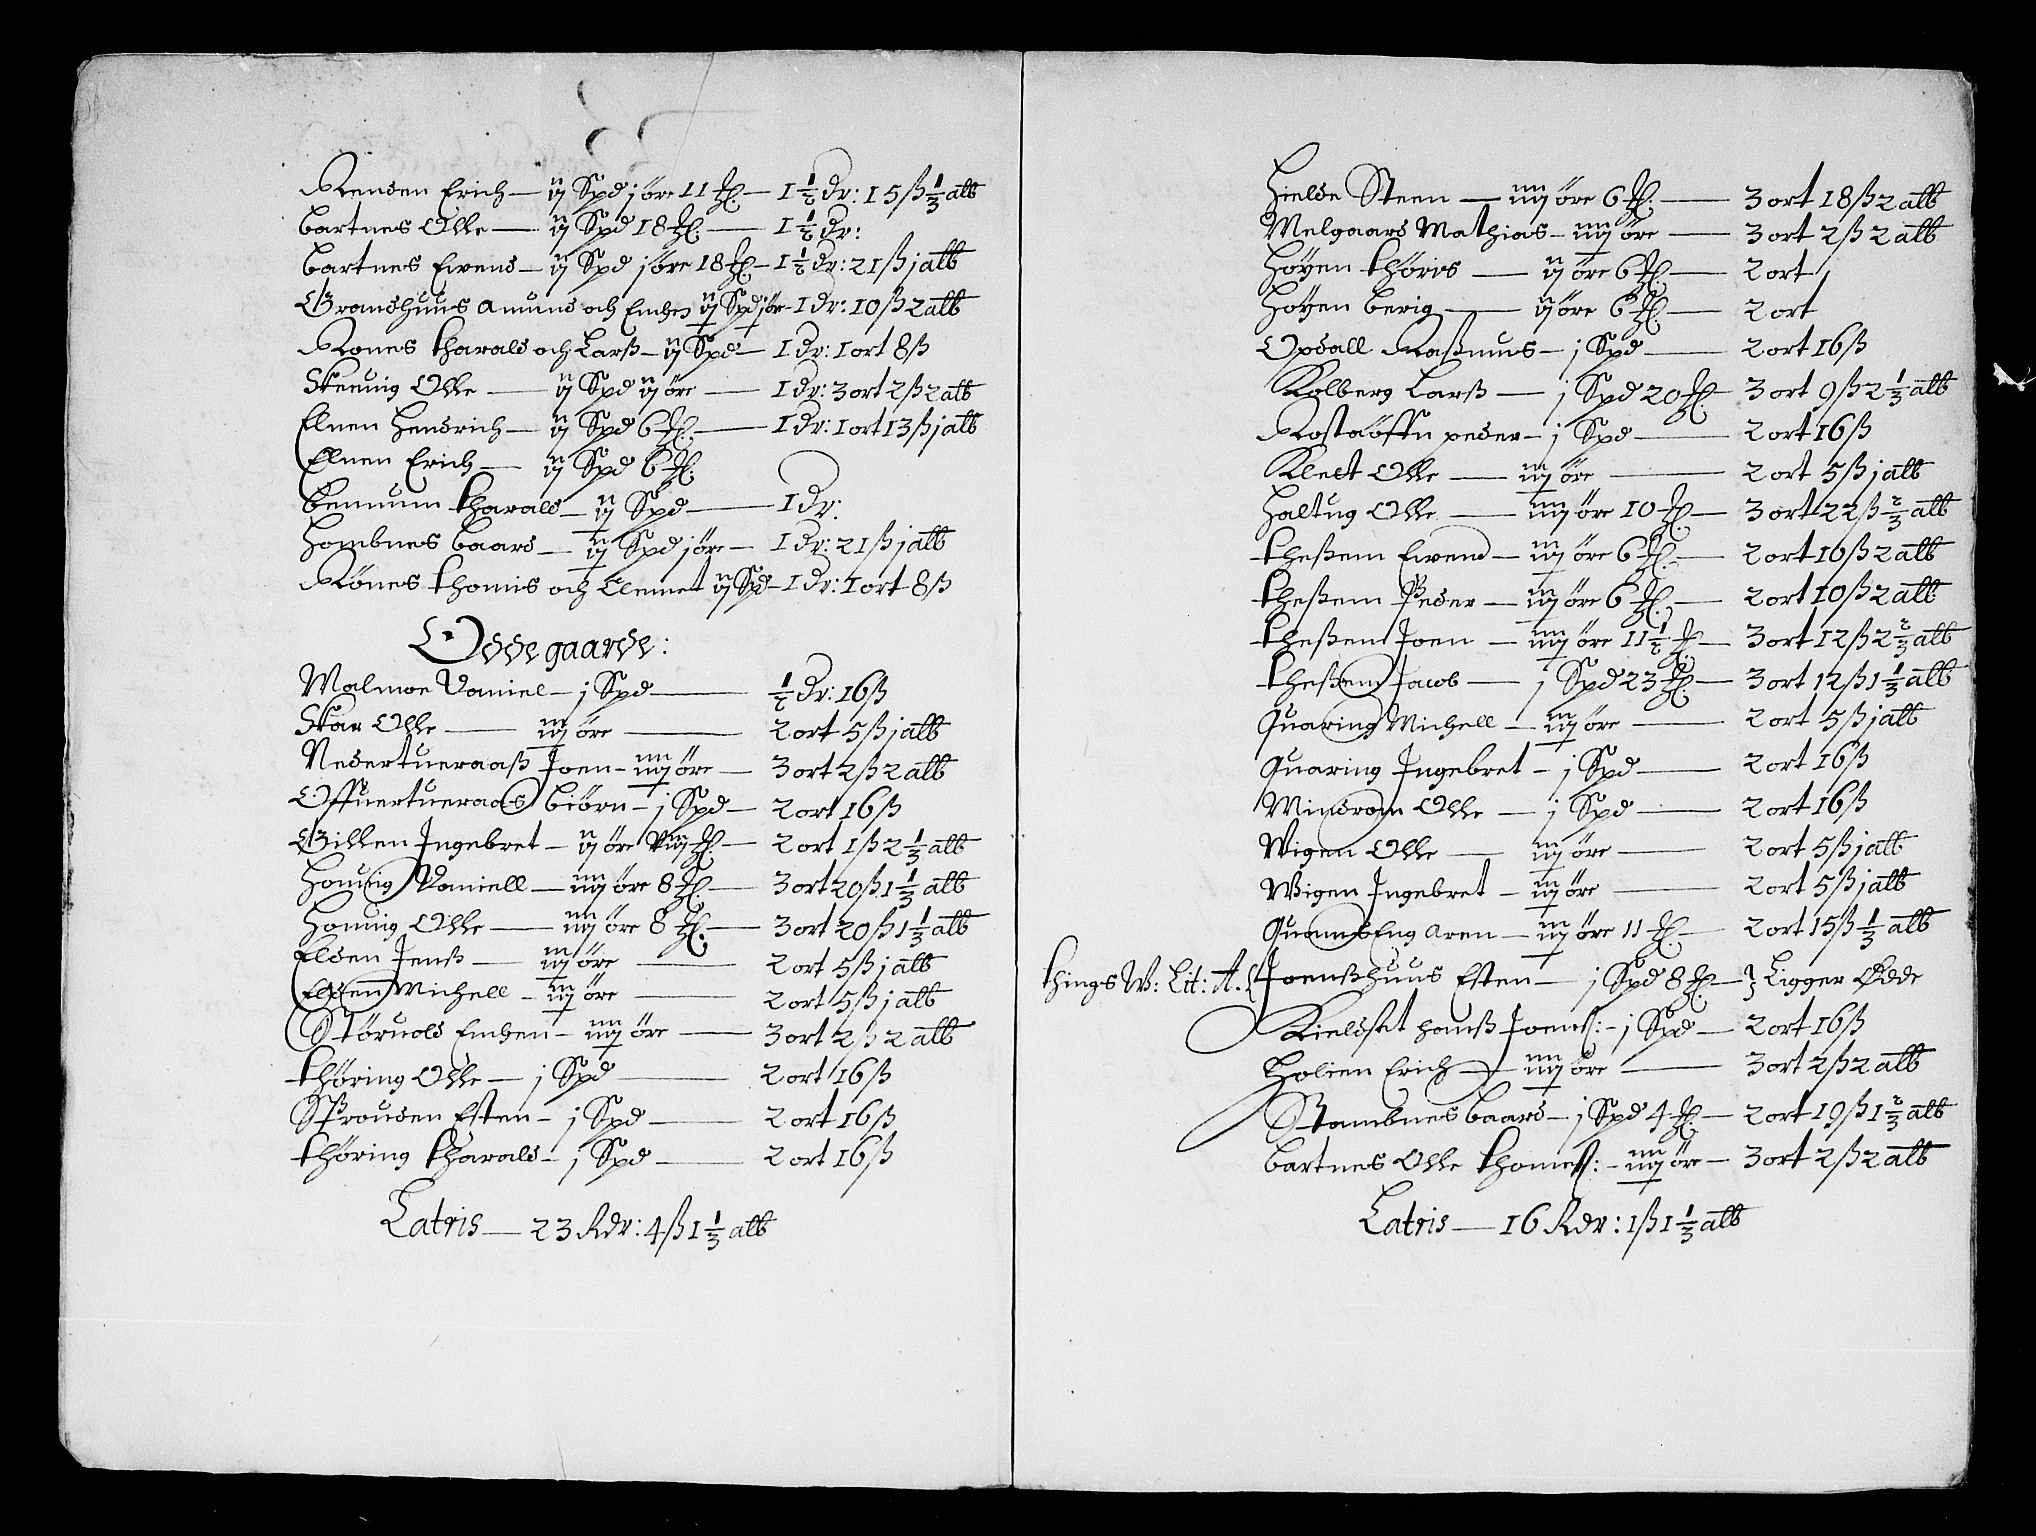 Rensen Erich — ij Spd j öre 11 ℔. — 1 1/2 dr: 15 ß 1/3 alb
Bartnes Olle — ij Spd 18 ℔. — 1 1/2 dr:
Bartnes Ewend — ij Spd j öre 18 ℔ — 1 1/2 dr: 21 ß j alb
Grandshuus Amund och Einhen ij Spd j ör — 1 dr: 10 ß 2 alb
Rones Tharald och Larß — ij Spd — 1 dr: 1 ort 8 ß
Skeuuig Olle — ij Spd ij öre — 1 dr: 3 ort 2 ß 2 alb
Elnen Hendrich — ij Spd 6 ℔. — 1 dr: 1 ort 13 ß j alb
Elnen Erich — ij Spd 6 ℔.
Bennum Tharald — ij Spd — 1 dr.
Hombnes Baard — ij Spd j öre — 1 dr: 21 ß j alb
Rönes Thomis och Clemet ij Spd — 1 dr: 1 ort 8 ß
Oddegaarde:
Malmoe Daniel — j Spd — 1/2 dr: 16 ß
Skar Olle — iij öre — 2 ort 5 ß j alb
Nedertueraaß Joen — iiij öre — 3 ort 2 ß 2 alb
Offuertueraas Biörn — j Spd — 2 ort 16 ß
Gillen Ingebret — ij öre viij ℔. — 2 ort 1 ß 2 1/3 alb
Houuig Daniell — iiij öre 8 ℔. — 3 ort 20 ß 1 1/3 alb
Houuig Olle — iiij öre 8 ℔. — 3 ort 20 ß 1 1/3 alb
Elden Jenß — iij öre — 2 ort 5 ß j alb
Elden Michell — iij öre — 2 ort 5 ß j alb
Störuold Einhen — iiij öre — 3 ort 2 ß 2 alb
Thöring Olle — j Spd — 2 ort 16 ß
Sprouden Esten — j Spd — 2 ort 16 ß
Thöring Tharald — j Spd — 2 ort 16 ß
Latris — 23 Rdr: 4 ß 1 1/3 alb
Hielde Steen — iiij öre 6 ℔. — 3 ort 18 ß 2 alb
Melgaard Mathias — iiij öre — 3 ort 2 ß 2 alb
Höyen Thörris — ij öre 6 ℔. — 2 ort
Höyen Berig — ij öre 6 ℔. — 2 ort
Opdall Raßmus — j Spd — 2 ort 16 ß
Kolberg Larß — j Spd 20 ℔ 3 ort 9 ß 2 1/3 alb
Rostaöffn peder — j Spd — 2 ort 16 ß
Klect Olle — iij öre — 2 ort 5 ß j alb
Haltug Olle — iiij öre 10 ℔ — 3 ort 22 ß 2/3 alb
Theßem Ewend — iij öre 6 ℔. — 2 ort 10 ß 2 alb
Theßem Peder — iij öre 6 ℔. — 2 ort 10 ß 2 alb
Theßem Joen — iiij öre 11 1/2 ℔ — 3 ort 12 ß 2 2/3 alb
Theßem Jacob — j Spd 23 ℔. — 3 ort 12 ß 1 1/3 alb
Quaring Michell — iij öre — 2 ort 5 ß j alb
Quaring Ingebret — j Spd — 2 ort 16 ß
Mindrom Olle — j Spd — 2 ort 16 ß
Wigen Olle — iij öre — 2 ort 5 ß j alb
Wigen Ingebret — iij öre — 2 ort 5 ß j alb
Quambs Eng Aren — iij öre 11 ℔. — 2 ort 15 ß 1/3 alb
Things W: Lit: A. Joenßhuus Esten — j Spd 8 ℔ — Ligger Ødde
Kieldset Hanß Joenß: — j Spd — 2 ort 16 ß
Holien Erich — iiij öre — 3 ort 2 ß 2 alb
Stambnes Baard — j Spd 4 ℔. — 2 ort 19 ß 1 2/3 alb
Bartnes Olle Thomeß: — iiij öre — 3 ort 2 ß 2 alb
Latris — 16 Rdr: 1 ß 1 1/3 alb